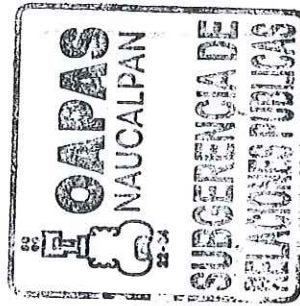 OAPAS
NAUCALPAN
22-24
SUBGERENCIA DE
RELACIONES PUBLICAS